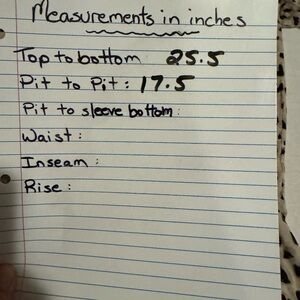 Measurements in inches
Top to bottom 25.5
Pit to Pit: 17.5
Pit to sleeve bottom:
Waist:
Inseam:
Rise: